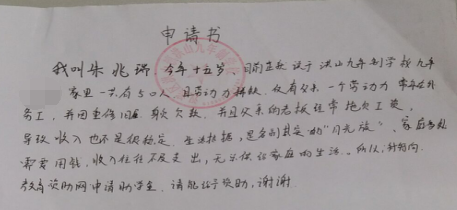 申请书
我叫朱兆瑞,今年十五岁,目前就读于洪山九年制学校九年
家里一共有5口人,且劳动力稀缺,仅有父亲一个劳动力常年在外
务工,并因重修旧居欠款,并且父亲的老板经常拖欠工资,
导致收入也不是很稳定,生活拮据,是名副其实的“月光族”,家庭
需要用钱,收入往往不及支出,无法供给家庭的生活。所以,特向
教育资助网申请助学金,请能给予资助,谢谢